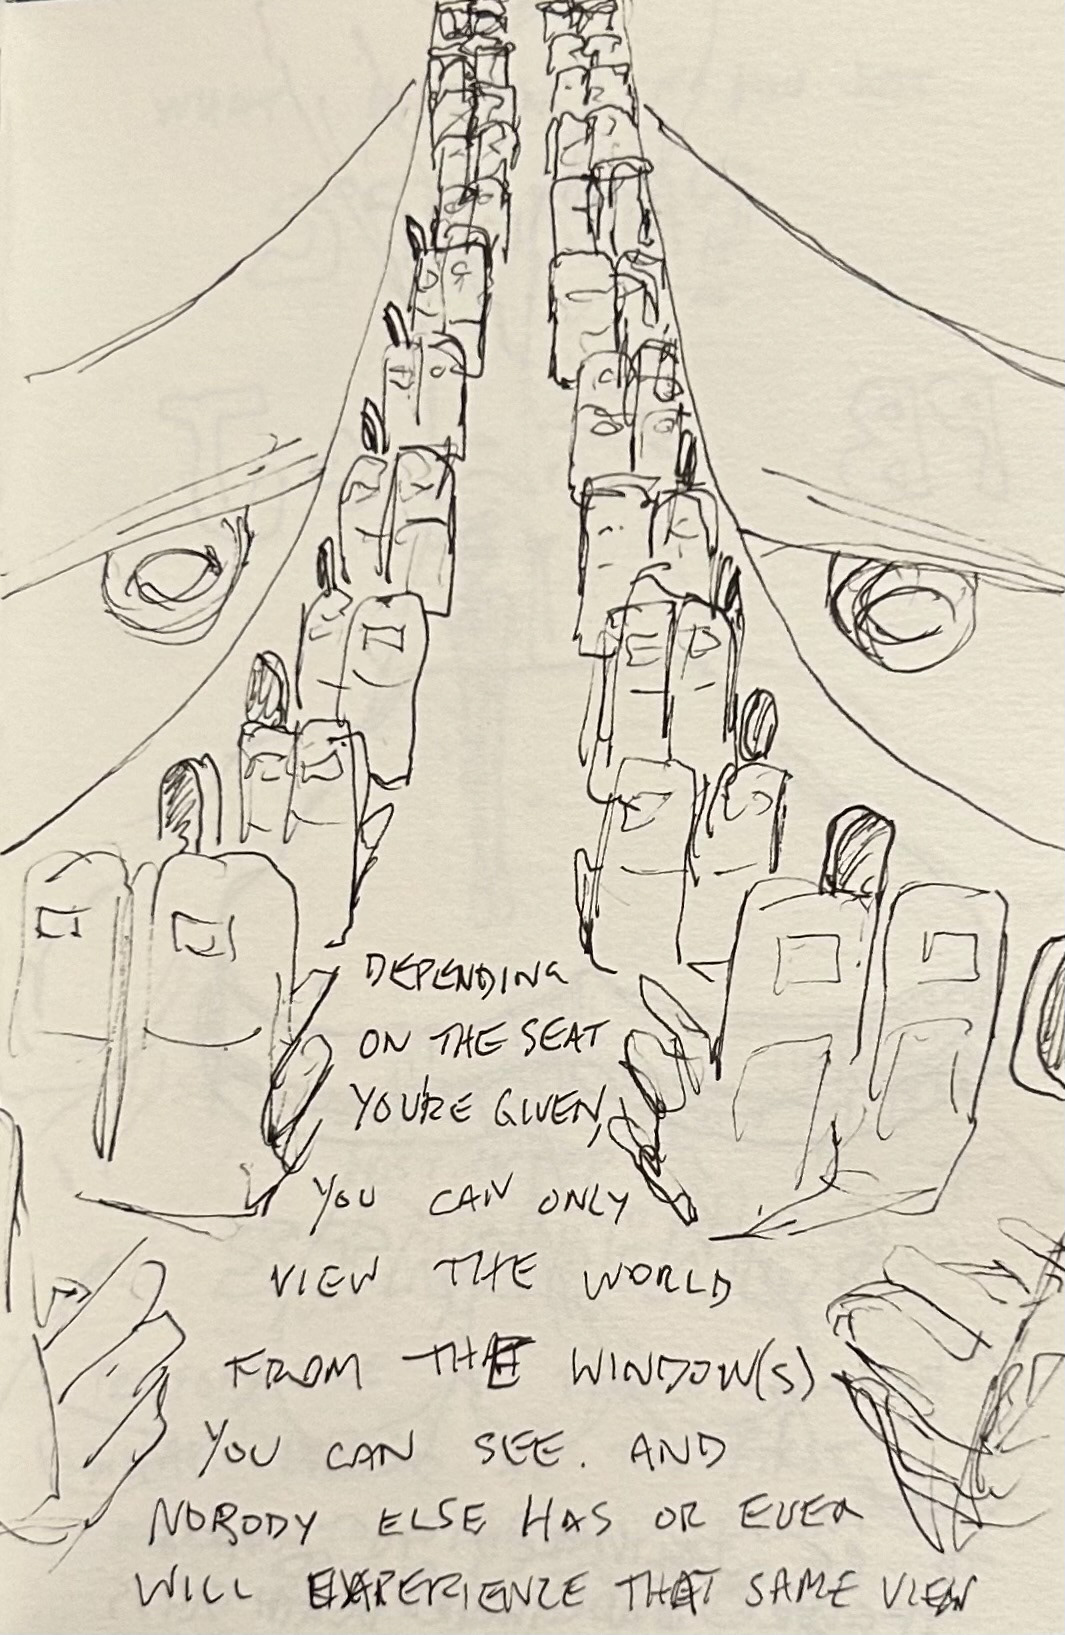 DEPENDING
ON THE SEAT
YOU'RE GIVEN,
YOU CAN ONLY
VIEW THE WORLD
FROM THE WINDOW(S)
YOU CAN SEE. AND
NOBODY ELSE HAS OR EVER
WILL EXPERIENCE THAT SAME VIEW